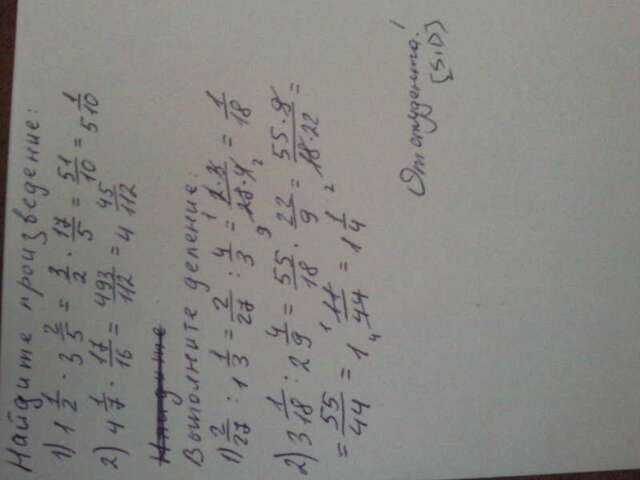 Найдите произведение:
1) 1 1/2 · 3 2/5 = 3/2 · 17/5 = 51/10 = 5 1/10
2) 4 1/7 · 17/16 = 493/112 = 4 45/112
Найдите
Выполните деление:
1) 2/27 : 1 1/3 = 2/27 : 4/3 = 2·3/27·4 = 1/18
2) 3 1/18 : 2 4/9 = 55/18 · 22/9 = 55·9/18·22 =
= 55/44 = 1 11/44 = 1 1/4
От студента!
(S.D)